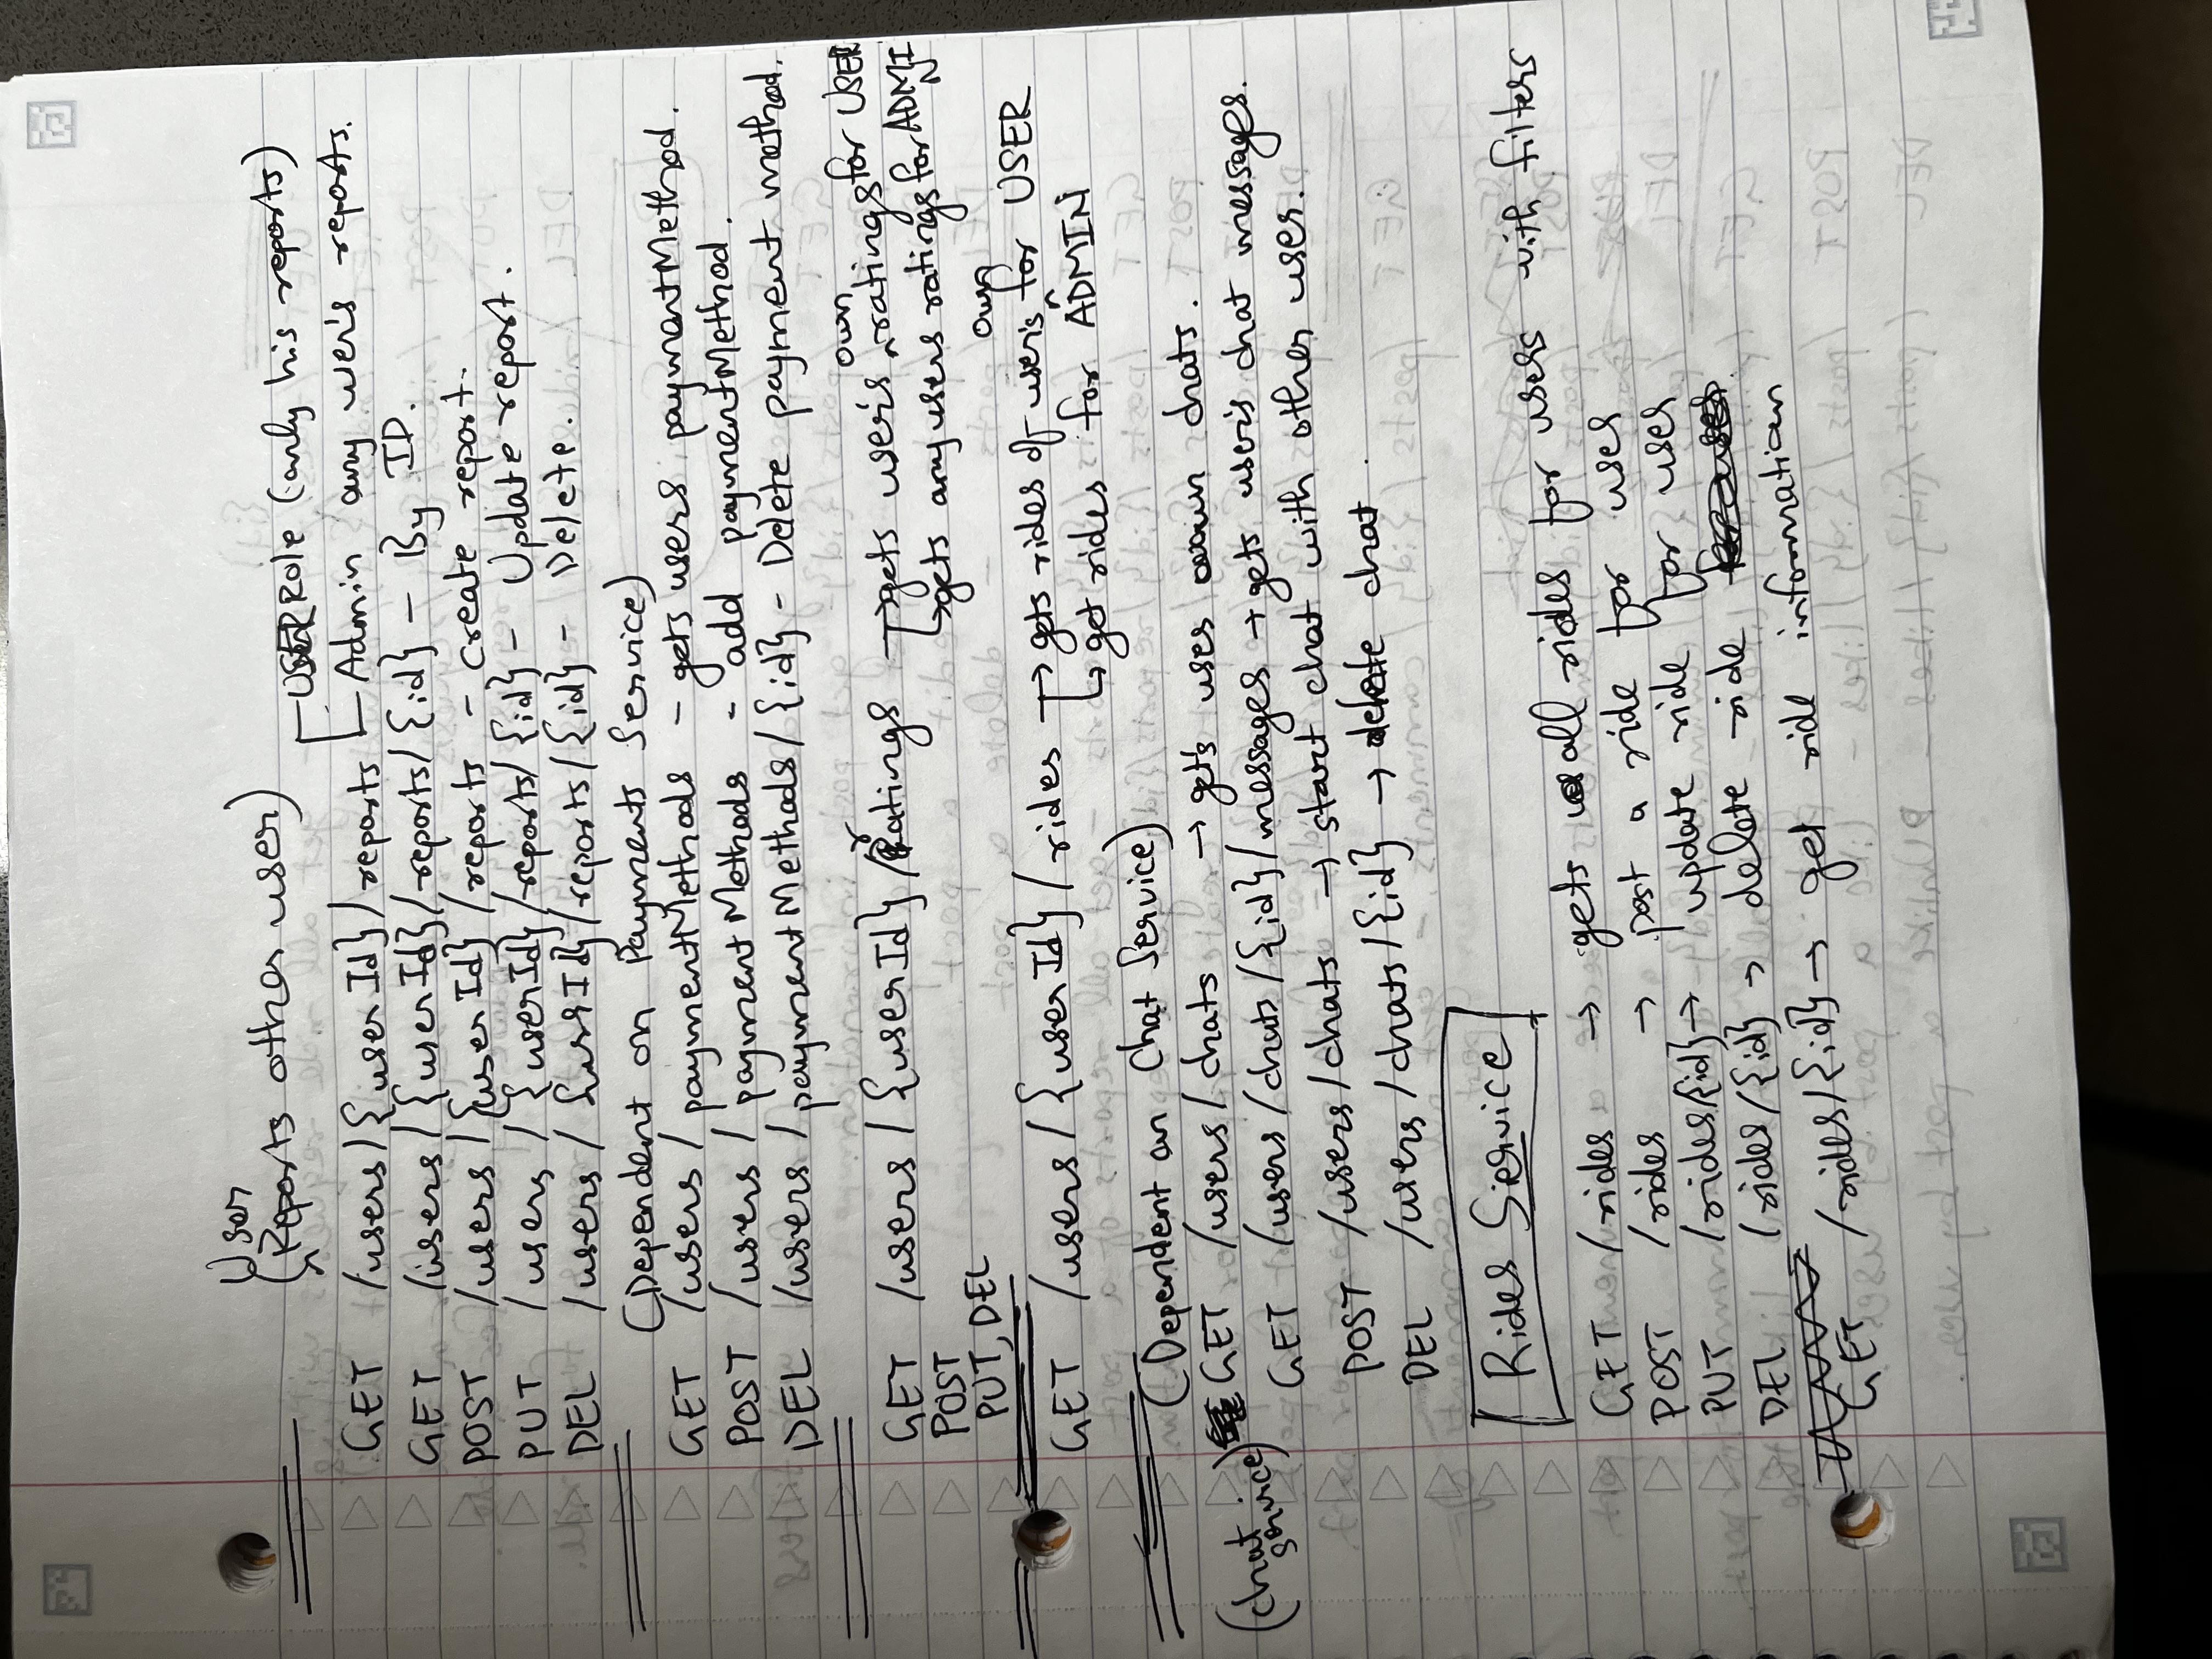 User
(Reports other user)
USER Role (only his reports)
GET /users/{userId}/reports Admin any user's reports.
GET /users/{userId}/reports/{id} - By ID.
POST /users/{userId}/reports - create report.
PUT /users/{userId}/reports/{id} - Update report.
DEL /users/{userId}/reports/{id} - Delete.
(Dependent on Payments Service)
GET /users/paymentMethods - gets users paymentMethod.
POST /users/paymentMethods - add paymentMethod.
DEL /users/paymentMethods/{id} - Delete payment method.
own
GET /users/{userId}/ratings → gets user's ratings for USER
POST ↳ gets any users ratings for ADMIN
PUT, DEL
own
GET /users/{userId}/rides → gets rides of user's for USER
↳ get rides for ADMIN
(Dependent on Chat Service)
(chat service) GET /users/chats → get's uses own chats.
GET /users/chats/{id}/messages → gets user's chat messages.
POST /users/chats → start chat with other user.
DEL /users/chats/{id} → delete chat.
Rides Service
GET /rides → gets all rides for users with filters
POST /rides → post a ride for user
PUT /rides/{id} → update ride for user
DEL /rides/{id} → delete ride
GET /rides/{id} → get ride information